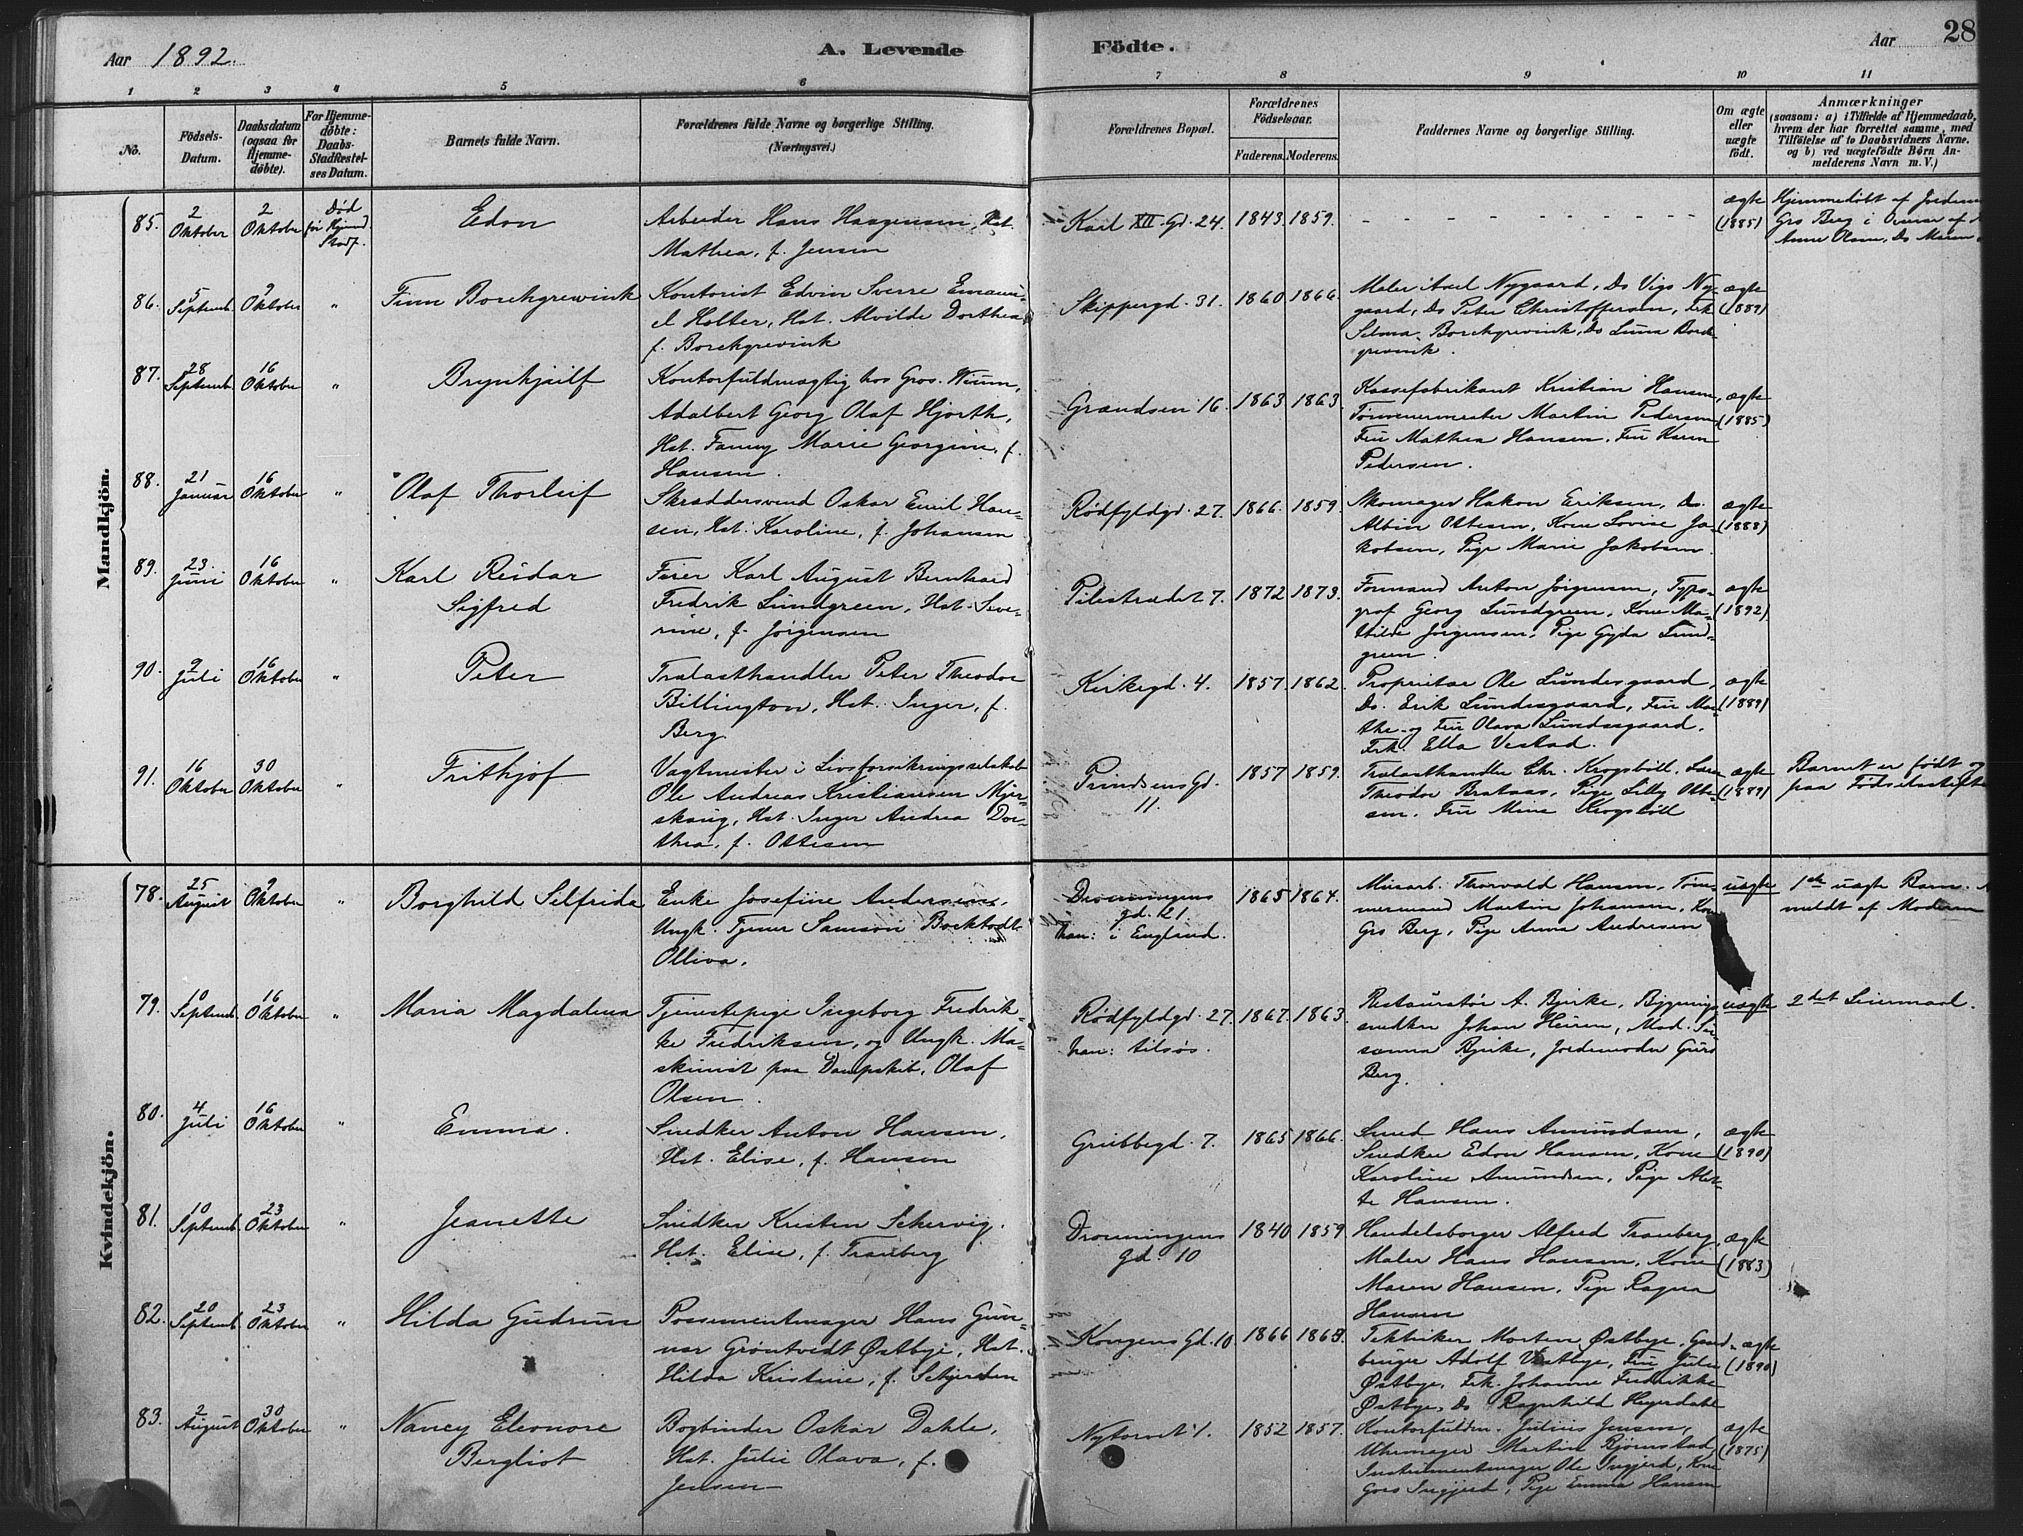 Aar 1892. A. Levende Födte. Aar 28
1 2 3 4 5 6 7 8 9 10 11
No.
Födsels-Datum.
Daabsdatum (ogsaa for Hjemmedöbte).
For Hjemmedöbte: Daabs-Stadfæstelses Datum.
Barnets fulde Navn.
Forældrenes fulde Navne og borgerlige Stilling.
(Næringsvei.)
Forældrenes Bopæl.
Forældrenes Födselsaar.
Faderens. Moderens.
Faddernes Navne og borgerlige Stilling.
Om ægte eller uægte født.
Anmærkninger
(saasom: a) i Tilfælde af Hjemmedaab,
hvem der har forrettet samme, med
Tilföielse af to Daabsvidners Navne,
og b) ved uægtefödte Börn An-
melderens Navn m. V.)
Mandkjön.
85. 2 Oktober 2 Oktober Død før Hjemd. Stadf. Edon
Arbeider Hans Haagensen, Hst.
Mathea, f. Jensen
Karl XII Gd. 24. 1843. 1859. - - - - - - ægte (1885)
Hjemmedøbt af Jordem
Grs Berg i Overvær af
Anne Olsen, Ds Maren
86. 5 Septemb. 9 Oktober " Finn Borchgrevink
Kontorist Edvin Sverre Emanu-
el Holter, Hst. Alvilde Dorthea
f. Borchgrevink
Skippergd. 31. 1860 1866.
Maler Axel Nygaard, Ds Vigo Ny-
gaard, Ds Peter Christoffersen, Frk
Selma Borchgrevink, Ds Luisa Borch
grevink.
ægte (1889)
87. 28 Septemb. 16 Oktober " Brynhjulf
Kontorfuldmægtig hos Gros. Wium,
Adalbert Georg Olaf Hjorth,
Hst. Fanny Marie Georgine, f.
Hansen.
Grændsen 16. 1863 1863.
Kassefabrikant Kristian Hansen,
Tømmermester Martin Pedersen
Fru Mathea Hansen, Fru Karen
Pedersen.
ægte (1885)
88. 21 Januar 16 Oktober " Olaf Thorleif
Skræddersvend Oskar Emil Han-
sen, Hst. Karoline, f. Johansen
Rødfyldgd. 27. 1866. 1859.
Skomager Hakon Eriksen, Ds.
Albin Ottesen, Kone Lovise Ja-
kobsen, Pige Marie Jakobsen.
ægte (1888)
89. 23. Juni 16 Oktober " Karl Reidar
Sigfred
Feier Karl August Bernhard
Fredrik Lundgreen, Hst. Seve-
rine, f. Jørgensen
Pilestrædet 7. 1872 1873.
Formand Anton Jørgensen, Typo-
graf Georg Lundgreen, Kone Ma-
thilde Jørgensen, Pige Gyda Lund-
green.
ægte (1892)
90. 9 Juli 16 Oktober " Peter
Trælasthandler Peter Theodor
Billington, Hst. Inger, f.
Berg.
Kirkegd. 4. 1857. 1862.
Proprietær Ole Lundesgaard,
Ds. Erik Lundesgaard, Fru Mar-
the og Fru Olava Lundesgaard,
Frk. Ella Vestad.
ægte (1889)
91. 16 Oktober 30 Oktober " Frithjof
Vagtmester i Livsforsikringsselskab
Ole Andreas Kristiansen Mjør-
skaug, Hst. Inger Andrea Dor-
thea, f. Ottesen
Prindsens Gd. 11. 1857 1859.
Trælasthandler Chr. Krogsbøll,
Theodor Brataas, Pige Lilly Otte-
sen, Fru Mina Krogsbøll
ægte (1889)
Barnet er født
paa Fødselsstifte
Kvindekjön.
78. 25 August 9 Oktober " Borghild Selfrida
Enke Josefine Andersen,
Ungk. Tjener Samson
Olliva.
Dronningens
gd. 21.
han: i England.
1865 1864.
Murarb. Thorvald Hansen, Tøm-
mermand Martin Johansen,
Grs Berg, Pige Anna Andresen
uægte
1ste uægte Barn.
meldt af Moderen
79. 10 Septemb. 16 Oktober " Maria Magdalena
Tjenestepige Ingeborg Fredrik-
ke Fredriksen, og Ungk. Ma-
skinist paa Dampskib, Olaf
Olsen.
Rødfyldgd. 27.
han: tilsøs.
1867. 1863.
Restauratør A. Bjerke, Bygnings
snedker Johan Heiren, Mad. Su-
sanna Bjerke, Jordemoder Guro
Berg.
uægte
2det Leiermaal.
80. 4 Juli 16 Oktober " Emma.
Snedker Anton Hansen,
Hst. Elise, f. Hansen
Grubbegd. 7. 1865 1866.
Smed Hans Amundsen,
Snedker Edon Hansen, Kone
Karoline Amundsen, Pige Alet-
te Hansen.
ægte (1890)
81. 10 Septemb. 23 Oktober " Jeanette
Snedker Kristen Schervig.
Hst. Elise, f. Tranberg
Dronningens
gd. 10
1840 1859
Handelsborger Alfred Tranberg,
Maler Hans Hansen, Kone
Maren Hansen, Pige Ragna
Hansen
ægte (1883)
82. 20 Septemb. 23 Oktober " Hilda Gudrun
Possementmager Hans Gun-
nar Grøntvedt Østbye, Hst.
Hilda Kristine, f. Schjerden
Kongens Gd. 10. 1866 1868.
Tekniker Morten Østbye, Gaard-
bruger Adolf Vestbye, Fru Julie
Østbye, Frk. Johanne Fredrikke
Østbye, Ds Ragnhild Heyerdahl
ægte (1890)
83. 2 August 30 Oktober " Nancy Eleonore
Bergliot
Bogbinder Oskar Dahle,
Hst. Julie Olava, f.
Jensen
Nytorvet 1. 1852 1857.
Kontorfuldm. Julius Jensen,
Uhrmager Martin Bjørnstad,
Instrumentmager Ole Ingjerd, Kone
Ingjerd, Pige Emma Hansen
ægte (1875)